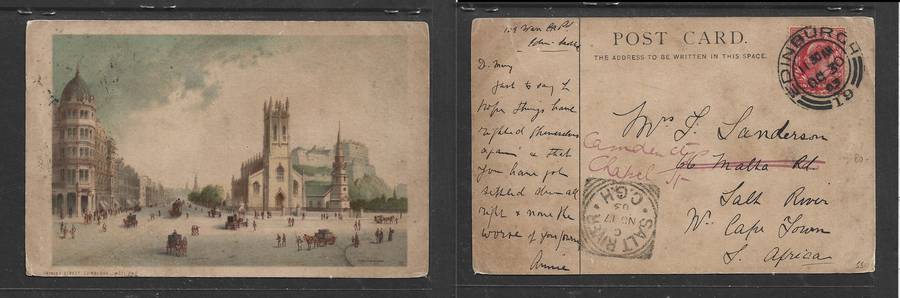 PRINCES STREET, EDINBURGH, WEST END
POST CARD.
THE ADDRESS TO BE WRITTEN IN THIS SPACE.
EDINBURGH
11 30 AM
OC 30
03
19
D. May
Just to say I
hope things have
righted themselves
again & that
you have got
settled down all
right & none the
worse of your journey
Annie
Mrs J. Sanderson
66 Malta Rd
Camden St
Chapel St
Salt River
Nr Cape Town
S. Africa
SALT RIVER
C
NO 17
03
C.G.H